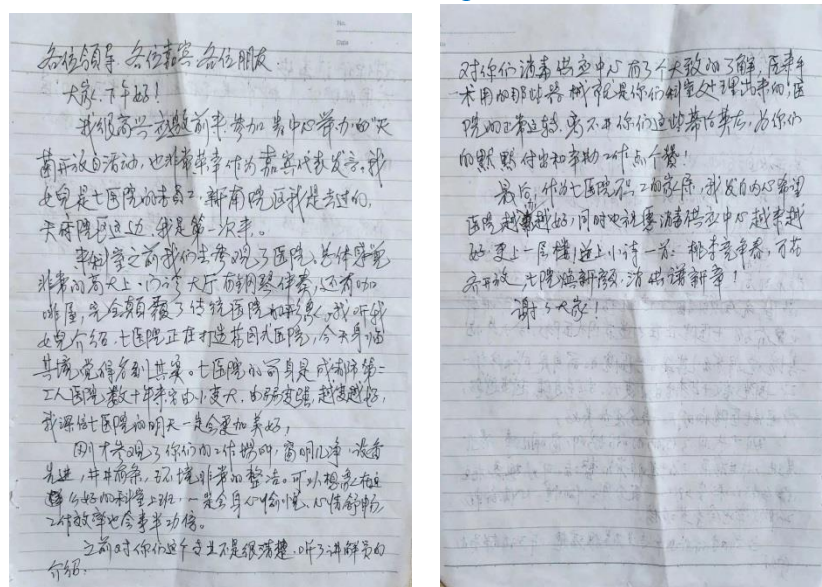 各位领导、各位嘉宾、各位朋友:
大家下午好!
我很高兴应邀前来参加贵中心举办的"天
开放日活动,也非常荣幸作为嘉宾代表发言。我
女儿是七医院的老员工,新南院区我是去过的,
天府院区这边,我是第一次来。
来科室之前我们去参观了医院,总体感觉
非常的高大上,门诊大厅有钢琴伴奏,还有咖
啡屋,完全颠覆了传统医院的形象。我听我
女儿介绍,七医院正在打造花园式医院,今天身临
其境觉得名副其实。七医院的前身是成都市第二
工人医院,数十年来由小变大,由弱变强,越变越好,
我深信七医院的明天一定会更加美好,
刚才参观了你们的工作场所,窗明几净,设备
先进,井井有条,环境非常的整洁。可以想象在这
么好的科室上班,一定会身心愉悦,心情舒畅,
工作效率也会事半功倍。
之前对你们这个专业不是很清楚,听了讲解员的
介绍,
对你们消毒供应中心有了个大致的了解,医生手
术用的那些器械就是你们科室处理出来的,医
院的正常运转,离不开你们这些幕后英雄,为你们
的默默付出和辛勤工作点个赞!
最后,作为七医院职工的家属,我发自内心希望
医院越来越好,同时也祝愿消毒供应中心越来越
好,更上一层楼,送上小诗一首:桃李竞争春,百花
齐开放,七院焕新颜,消供谱新章!
谢谢大家!